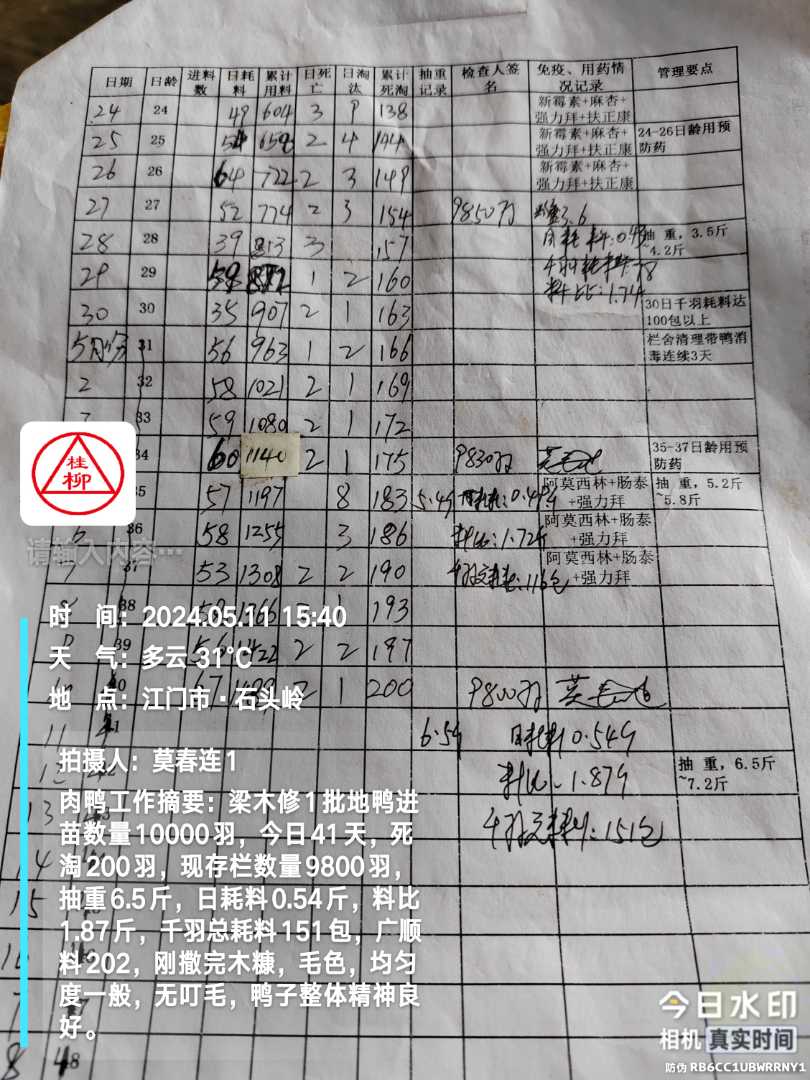 日期 日龄 进料数 日耗料 累计用料 日死亡 日淘汰 累计死淘 抽重记录 检查人签名 免疫、用药情况记录 管理要点
24 24 49 604 3 9 138 新霉素+麻杏+强力拜+扶正康
25 25 54 658 2 4 144 新霉素+麻杏+强力拜+扶正康 24-26日龄用预防药
26 26 64 722 2 3 149 新霉素+麻杏+强力拜+扶正康
27 27 52 774 2 3 154 9850羽 3.6
28 28 39 813 3 157 日耗料:0.4 抽重,3.5斤~4.2斤
29 29 59 872 1 2 160 千羽耗料
料比:1.74
30 30 35 907 2 1 163 30日千羽耗料达100包以上
31 56 963 1 2 166 栏舍清理带鸭消毒连续3天
2 32 58 1021 2 1 169
33 59 1080 2 1 172
34 60 1140 2 1 175 9830羽 35-37日龄用预防药
35 57 1197 8 183 5.4 0.49 阿莫西林+肠泰+强力拜 抽重,5.2斤~5.8斤
6 36 58 1255 3 186 料比:1.72 阿莫西林+肠泰+强力拜
7 37 53 1308 2 2 190 116包 阿莫西林+肠泰+强力拜
38 58 1366 1 193
39 56 1422 2 2 197
40 67 2 1 200 9800羽
11 6.5斤 日耗料0.54斤
12 料比 1.87斤 抽重,6.5斤~7.2斤
13 151包
14
15
8 48
桂柳
请输入内容…
时间:2024.05.11 15:40
天气:多云 31℃
地点:江门市·石头岭
拍摄人:莫春连1
肉鸭工作摘要:梁木修1批地鸭进
苗数量10000羽,今日41天,死
淘200羽,现存栏数量9800羽,
抽重6.5斤,日耗料0.54斤,料比
1.87斤,千羽总耗料151包,广顺
料202,刚撒完木糠,毛色,均匀
度一般,无叮毛,鸭子整体精神良
好。
今日水印
相机 真实时间
防伪 RB6CC1UBWRRNY1